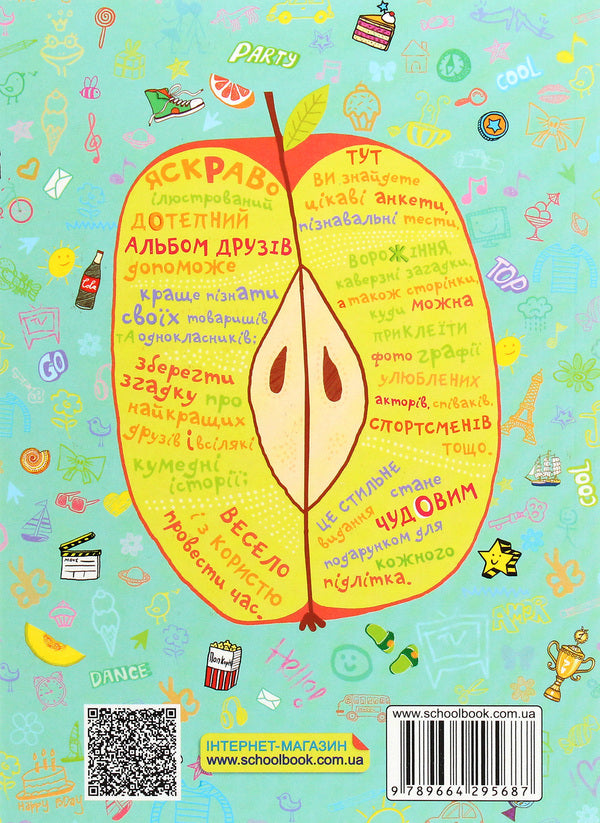 PARTY
COOL
ЯСКРАВО
ілюстрований
ДОТЕПНИЙ
АЛЬБОМ ДРУЗІВ
допоможе
краще пізнати
своїх товаришів
та однокласників;
зберегти
згадку про
найкращих
друзів і всілякі
кумедні
історії;
ВЕСЕЛО
і з користю
провести час.
ТУТ
ВИ знайдете
цікаві анкети,
пізнавальні тести,
ВОРОЖІННЯ,
каверзні загадки,
а також сторінки,
куди можна
ПРИКЛЕЇТИ
фотографії
УЛЮБЛЕНИХ
акторів, співаків,
СПОРТСМЕНІВ
ТОЩО.
ЦЕ СТИЛЬНЕ
видання стане
ЧУДОВИМ
подарунком для
кожного
підлітка.
Cola
TOP
GO
COOL
MOVIE
DANCE
Попкорн
Hello!
Happy Bday
ІНТЕРНЕТ-МАГАЗИН
www.schoolbook.com.ua
www.schoolbook.com.ua
9 789664 295687